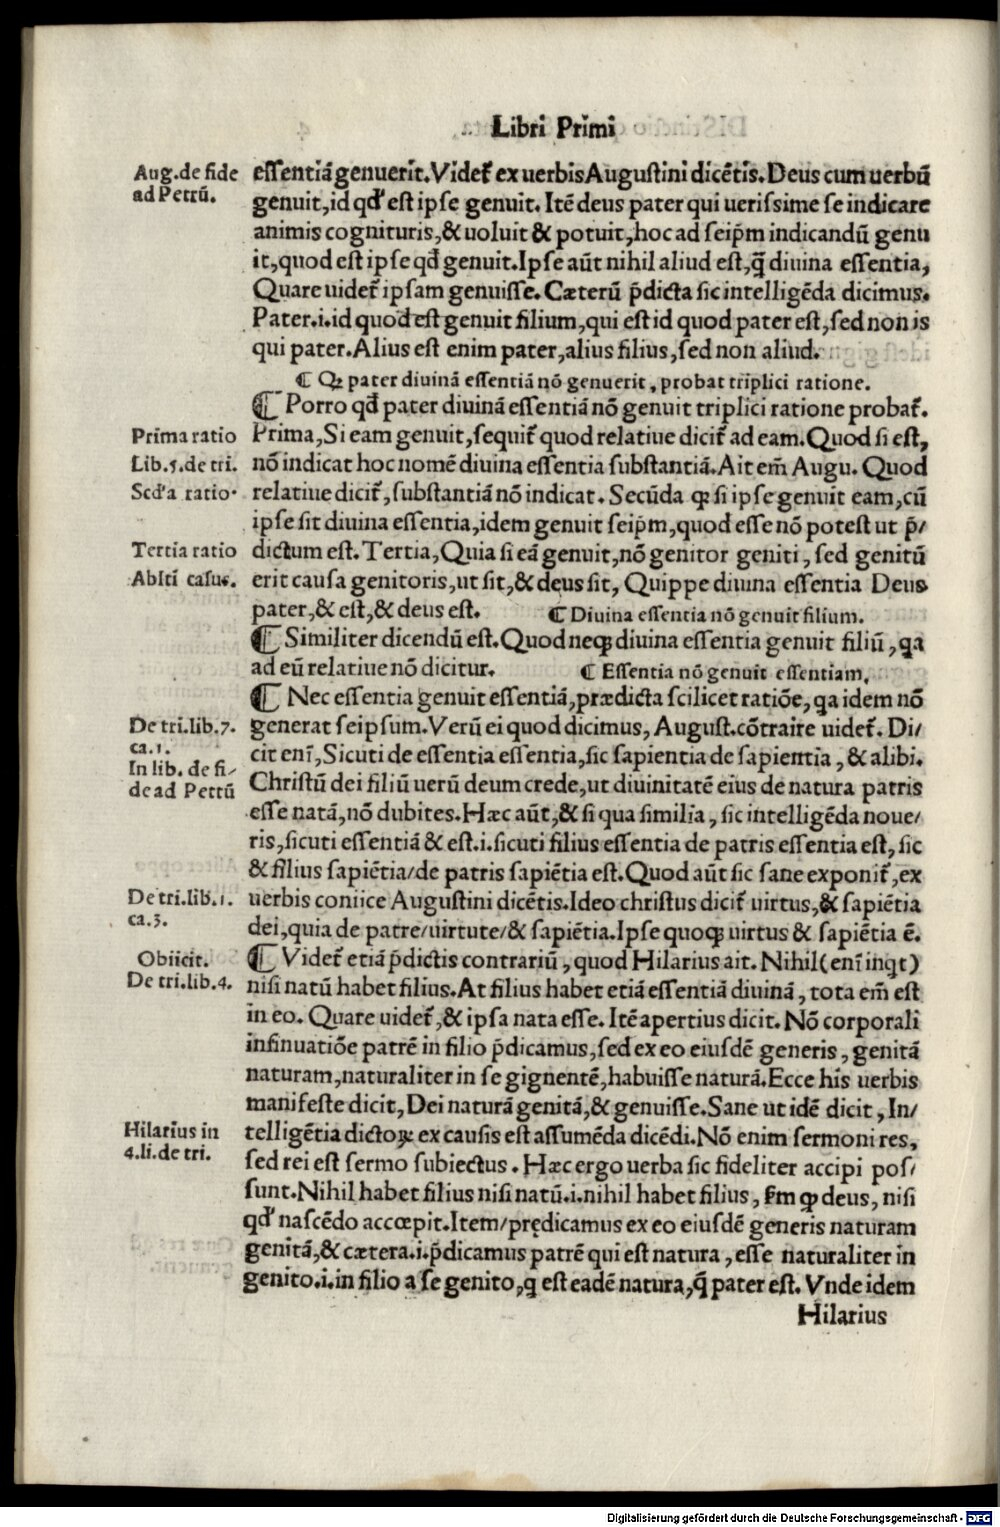 Libri Primi
Aug. de fide
ad Petrū.
essentiā genuerit. Videt᷑ ex uerbis Augustini dicētis. Deus cum uerbū
genuit, id qđ est ipse genuit. Itē deus pater qui uerissime se indicare
animis cognituris, & uoluit & potuit, hoc ad seip̄m indicandū genu
it, quod est ipse qđ genuit. Ipse aūt nihil aliud est, q̄ diuina essentia,
Quare uidet᷑ ipsam genuisse. Cæterū p̄dicta sic intelligēda dicimus.
Pater .i. id quod est genuit filium, qui est id quod pater est, sed non is
qui pater. Alius est enim pater, alius filius, sed non aliud.
¶ Qꝫ pater diuinā essentiā nō genuerit, probat triplici ratione.
¶ Porro qđ pater diuinā essentiā nō genuit triplici ratione probat᷑.
Prima ratio
Prima, Si eam genuit, sequit᷑ quod relatiue dicit᷑ ad eam. Quod si est,
Lib. 5. de tri.
nō indicat hoc nomē diuina essentia substantiā. Ait em̄ Augu. Quod
Scd'a ratio.
relatiue dicit᷑, substantiā nō indicat. Secūda qꝫ si ipse genuit eam, cū
ipse sit diuina essentia, idem genuit seip̄m, quod esse nō potest ut p̄/
Tertia ratio
dictum est. Tertia, Quia si eā genuit, nō genitor geniti, sed genitū
Ablti casus.
erit causa genitoris, ut sit, & deus sit, Quippe diuina essentia Deus
pater, & est, & deus est. ¶ Diuina essentia nō genuit filium.
¶ Similiter dicendū est. Quod neqꝫ diuina essentia genuit filiū, qa
ad eū relatiue nō dicitur. ¶ Essentia nō genuit essentiam.
¶ Nec essentia genuit essentiā, prædicta scilicet ratiōe, qa idem nō
De tri. lib. 7.
ca. 1.
generat seipsum. Verū ei quod dicimus, August. cōtraire uidet᷑. Di/
cit eni᷑, Sicuti de essentia essentia, sic sapientia de sapientia, & alibi.
In lib. de fi/
de ad Petrū
Christū dei filiū uerū deum crede, ut diuinitatē eius de natura patris
esse natā, nō dubites. Hæc aūt, & si qua similia, sic intelligēda noue/
ris, sicuti essentiā & est .i. sicuti filius essentia de patris essentia est, sic
& filius sapiētia/de patris sapiētia est. Quod aūt sic sane exponit᷑, ex
De tri. lib. 1.
ca. 3.
uerbis coniice Augustini dicētis. Ideo christus dicit᷑ uirtus, & sapiētia
dei, quia de patre/uirtute/& sapiētia. Ipse quoqꝫ uirtus & sapiētia ē.
Obiicit.
¶ Videt᷑ etiā p̄dictis contrariū, quod Hilarius ait. Nihil (eni᷑ inqt)
De tri. lib. 4.
nisi natū habet filius. At filius habet etiā essentiā diuinā, tota em̄ est
in eo. Quare uidet᷑, & ipsa nata esse. Itē apertius dicit. Nō corporali
infinuatiōe patrē in filio p̄dicamus, sed ex eo eiusdē generis, genitā
naturam, naturaliter in se gignentē, habuisse naturā. Ecce his uerbis
manifeste dicit, Dei naturā genitā, & genuisse. Sane ut idē dicit, In/
Hilarius in
4. li. de tri.
telligētia dictoꝝ ex causis est assumēda dicēdi. Nō enim sermoni res,
sed rei est sermo subiectus. Hæc ergo uerba sic fideliter accipi pos/
sunt. Nihil habet filius nisi natū .i. nihil habet filius, s̄m qꝫ deus, nisi
qđ nascēdo accœpit. Item/prędicamus ex eo eiusdē generis naturam
genitā, & cætera .i. p̄dicamus patrē qui est natura, esse naturaliter in
genito .i. in filio a se genito, q est eadē natura, q̄ pater est. Vnde idem
Hilarius
Digitalisierung gefördert durch die Deutsche Forschungsgemeinschaft - DFG